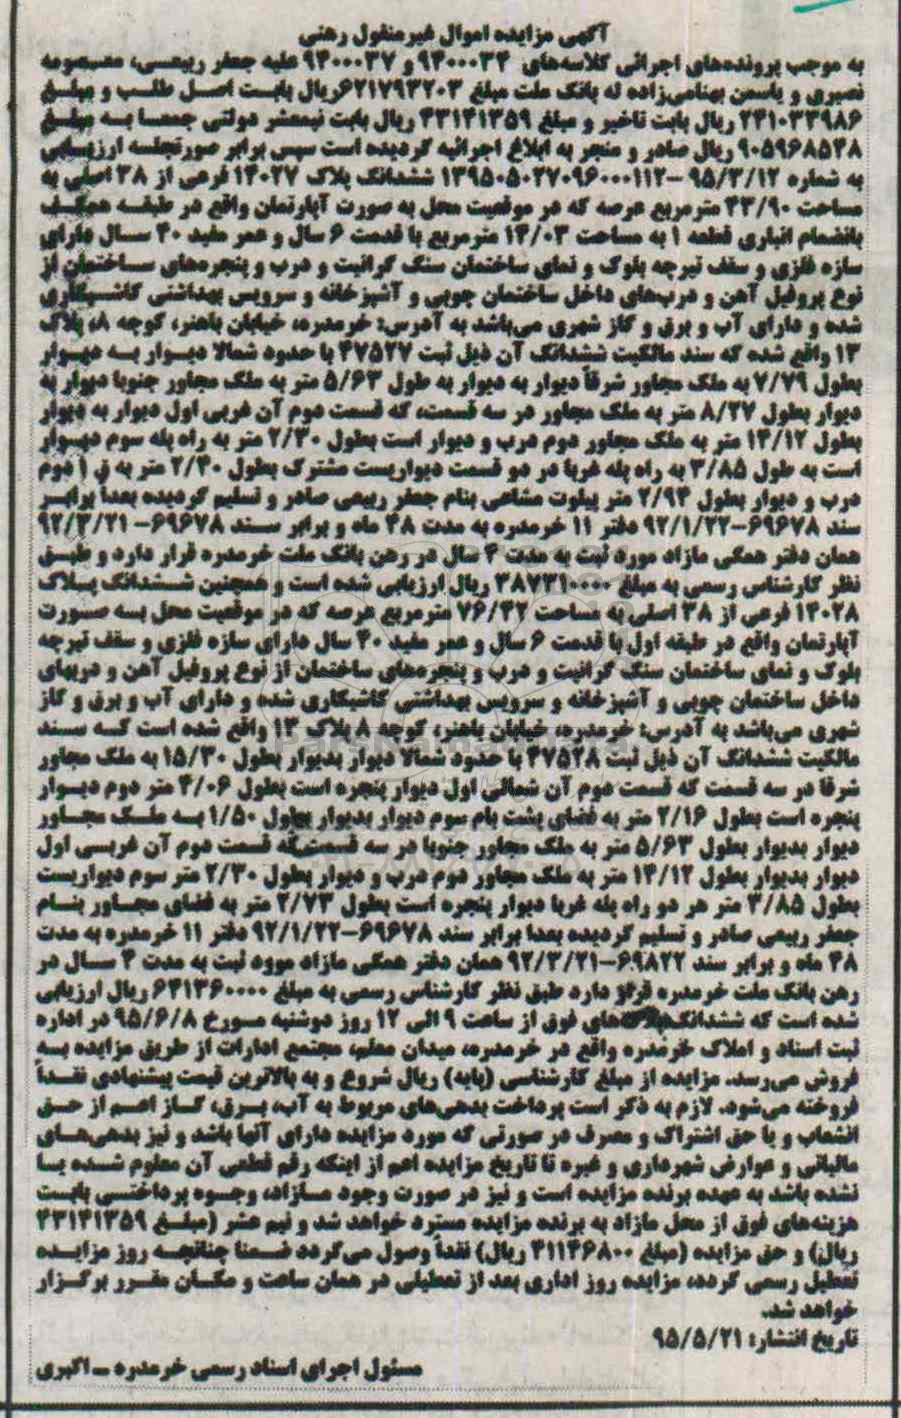 آگهی مزایده اموال غیرمنقول رهنی
به موجب پرونده‌های اجرائی کلاسه‌های ۹۴۰۰۰۳۴ و ۹۴۰۰۰۳۷ علیه جعفر ربیعی، معصومه
نصیری و یاسمن بهنامی‌زاده له بانک ملت مبلغ ۶۲۱۷۹۳۲۰۳ریال بابت اصل طلب و مبلغ
۲۴۱۰۳۳۹۸۶ ریال بابت تاخیر و مبلغ ۴۳۱۴۱۳۵۹ ریال بابت نیمعشر دولتی جمعا به مبلغ
۹۰۵۹۶۸۵۴۸ ریال صادر و منجر به ابلاغ اجرائیه گردیده است سپس برابر صورتجلسه ارزیابی
به شماره ۹۵/۳/۱۲ –۱۳۹۵۰۵۰۲۷۰۹۶۰۰۰۱۱۲ ششدانگ پلاک ۱۴۰۲۷ فرعی از ۳۸ اصلی به
مساحت ۴۳/۹۰ مترمربع عرصه که در موقعیت محل به صورت آپارتمان واقع در طبقه همکف
بانضمام انباری قطعه ۱ به مساحت ۱۴/۰۳ مترمربع با قدمت ۶ سال و عمر مفید ۴۰ سال دارای
سازه فلزی و سقف تیرچه بلوک و نمای ساختمان سنگ گرانیت و درب و پنجره‌های ساختمان از
نوع پروفیل آهن و درب‌های داخل ساختمان چوبی و آشپزخانه و سرویس بهداشتی کاشیکاری
شده و دارای آب و برق و گاز شهری می‌باشد به آدرس: خرمدره، خیابان باهنر، کوچه ۸، پلاک
۱۳ واقع شده که سند مالکیت ششدانگ آن ذیل ثبت ۴۷۵۲۷ با حدود شمالا دیوار به دیوار
بطول ۷/۷۹ به ملک مجاور شرقاً دیوار به دیوار به طول ۵/۶۳ متر به ملک مجاور جنوبا دیوار به
دیوار بطول ۸/۲۷ متر به ملک مجاور در سه قسمت، که قسمت دوم آن غربی اول دیوار به دیوار
بطول ۱۴/۱۲ متر به ملک مجاور دوم درب و دیوار است بطول ۲/۳۰ متر به راه پله سوم دیوار
است به طول ۳/۸۵ به راه پله غربا در دو قسمت دیواریست مشترک بطول ۲/۴۰ متر به ق ۱ دوم
درب و دیوار بطول ۲/۹۴ متر پیلوت مشاعی بنام جعفر ربیعی صادر و تسلیم گردیده بعداً برابر
سند ۶۹۶۷۸–۹۲/۱/۲۲ دفتر ۱۱ خرمدره به مدت ۴۸ ماه و برابر سند ۶۹۶۷۸– ۹۲/۳/۲۱
همان دفتر همگی مازاد مورد ثبت به مدت ۴ سال در رهن بانک ملت خرمدره قرار دارد و طبق
نظر کارشناس رسمی به مبلغ ۳۸۷۳۱۰۰۰۰ ریال ارزیابی شده است و همچنین ششدانگ پلاک
۱۴۰۲۸ فرعی از ۳۸ اصلی به مساحت ۷۶/۴۲ مترمربع عرصه که در موقعیت محل به صورت
آپارتمان واقع در طبقه اول با قدمت ۶ سال و عمر مفید ۴۰ سال دارای سازه فلزی و سقف تیرچه
بلوک و نمای ساختمان سنگ گرانیت و درب و پنجره‌های ساختمان از نوع پروفیل آهن و دربهای
داخل ساختمان چوبی و آشپزخانه و سرویس بهداشتی کاشیکاری شده و دارای آب و برق و گاز
شهری می‌باشد به آدرس: خرمدره، خیابان باهنر، کوچه ۸ پلاک ۱۳ واقع شده است که سند
مالکیت ششدانگ آن ذیل ثبت ۴۷۵۲۸ با حدود شمالا دیوار بدیوار بطول ۱۵/۳۰ به ملک مجاور
شرقا در سه قسمت که قسمت دوم آن شمالی اول دیوار پنجره است بطول ۴/۰۶ متر دوم دیوار
پنجره است بطول ۲/۱۶ متر به فضای پشت بام سوم دیوار بدیوار بطول ۱/۵۰ به ملک مجاور
دیوار بدیوار بطول ۵/۶۳ متر به ملک مجاور جنوبا در سه قسمت که قسمت دوم آن غربی اول
دیوار بدیوار بطول ۱۴/۱۲ متر به ملک مجاور دوم درب و دیوار بطول ۲/۳۰ متر سوم دیواریست
بطول ۳/۸۵ متر هر دو راه پله غربا دیوار پنجره است بطول ۲/۷۳ متر به فضای مجاور بنام
جعفر ربیعی صادر و تسلیم گردیده بعدا برابر سند ۶۹۶۷۸–۹۲/۱/۲۲ دفتر ۱۱ خرمدره به مدت
۴۸ ماه و برابر سند ۶۹۸۲۲–۹۲/۳/۲۱ همان دفتر همگی مازاد موود ثبت به مدت ۴ سال در
رهن بانک ملت خرمدره قرار دارد طبق نظر کارشناس رسمی به مبلغ ۶۴۱۳۶۰۰۰۰ ریال ارزیابی
شده است که ششدانگ پلاک‌های فوق از ساعت ۹ الی ۱۲ روز دوشنبه مورخ ۹۵/۶/۸ در اداره
ثبت اسناد و املاک خرمدره واقع در خرمدره، میدان معلم، مجتمع ادارات از طریق مزایده به
فروش می‌رسد. مزایده از مبلغ کارشناسی (پایه) ریال شروع و به بالاترین قیمت پیشنهادی نقداً
فروخته می‌شود. لازم به ذکر است پرداخت بدهی‌های مربوط به آب، برق، گاز اعم از حق
انشعاب و یا حق اشتراک و مصرف در صورتی که مورد مزایده دارای آنها باشد و نیز بدهی‌های
مالیاتی و عوارض شهرداری و غیره تا تاریخ مزایده اعم از اینکه رقم قطعی آن معلوم شده یا
نشده باشد به عهده برنده مزایده است و نیز در صورت وجود مازاد، وجوه پرداختی بابت
هزینه‌های فوق از محل مازاد به برنده مزایده مسترد خواهد شد و نیم عشر (مبلغ ۴۳۱۴۱۳۵۹
ریال) و حق مزایده (مبلغ ۴۱۱۴۶۸۰۰ ریال) نقداً وصول می‌گردد ضمنا چنانچه روز مزایده
تعطیل رسمی گردد، مزایده روز اداری بعد از تعطیلی در همان ساعت و مکان مقرر برگزار
خواهد شد.
تاریخ انتشار: ۹۵/۵/۲۱
مسئول اجرای اسناد رسمی خرمدره – اکبری